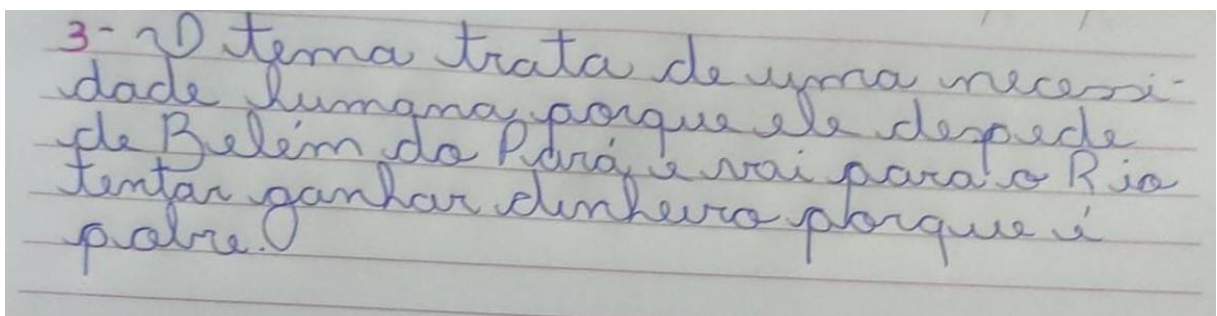 3- O tema trata de uma necessi-
dade humana, porque ele despede
de Belém do Pará, e vai para o Rio
tentar ganhar dinheiro porque é
pobre.